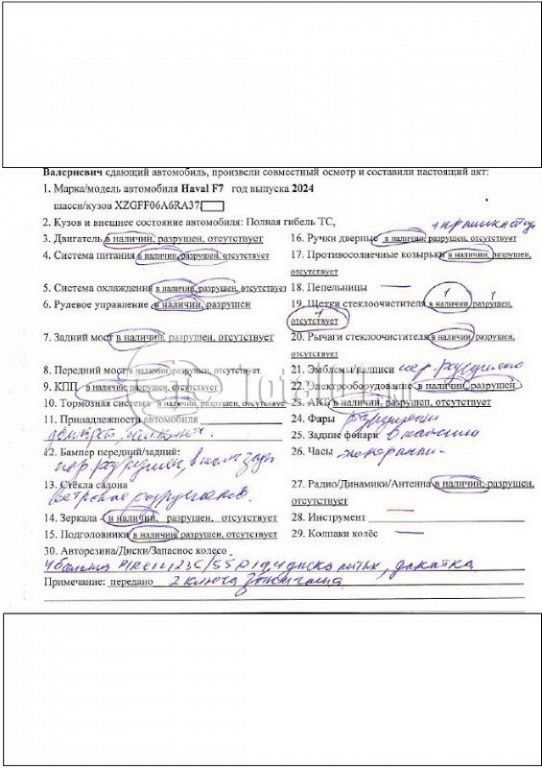 Валериевич сдающий автомобиль, произвели совместный осмотр и составили настоящий акт:
1. Марка/модель автомобиля Haval F7 год выпуска 2024
шасси/кузов XZGFF06A6RA37
2. Кузов и внешнее состояние автомобиля: Полная гибель ТС,
3. Двигатель в наличии, разрушен, отсутствует
16. Ручки дверные в наличии, разрушен, отсутствует
4. Система питания в наличии, разрушен, отсутствует
17. Противосолнечные козырьки в наличии, разрушен,
отсутствует
5. Система охлаждения в наличии, разрушен, отсутствует
18. Пепельницы
6. Рулевое управление в наличии, разрушен
19. Щетки стеклоочистителя в наличии, разрушен,
1 1
отсутствует
1
7. Задний мост в наличии, разрушен, отсутствует
20. Рычаги стеклоочистителя в наличии, разрушен,
отсутствует
8. Передний мост в наличии, разрушен, отсутствует
21. Эмблемы/надписи
9. КПП в наличии, разрушен, отсутствует
22. Электрооборудование в наличии, разрушен
10. Тормозная система в наличии, разрушен, отсутствует
23. АКБ в наличии, разрушен, отсутствует
11. Принадлежности автомобиля
24. Фары разрушены
25. Задние фонари в наличии
12. Бампер передний/задний:
26. Часы
пер разрушен, в наличии зад
13. Стёкла салона
27. Радио/Динамики/Антенна в наличии, разрушен,
отсутствует
ветровое разрушено.
14. Зеркала - в наличии, разрушен, отсутствует
28. Инструмент
15. Подголовники в наличии, разрушен, отсутствует
29. Колпаки колёс
30. Авторезина/Диски/Запасное колесо
235/55 диска литых, докатка
Примечание: передано 2 ключа зажигания